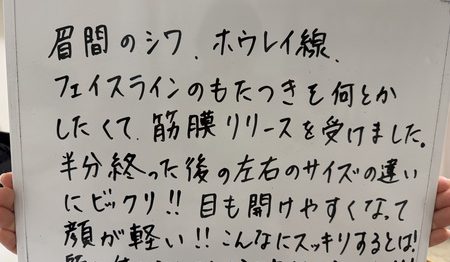 眉間のシワ、ホウレイ線、
フェイスラインのもたつきを何とか
したくて、筋膜リリースを受けました。
半分終った後の左右のサイズの違い
にビックリ!! 目も開けやすくなって
顔が軽い!! こんなにスッキリするとは!